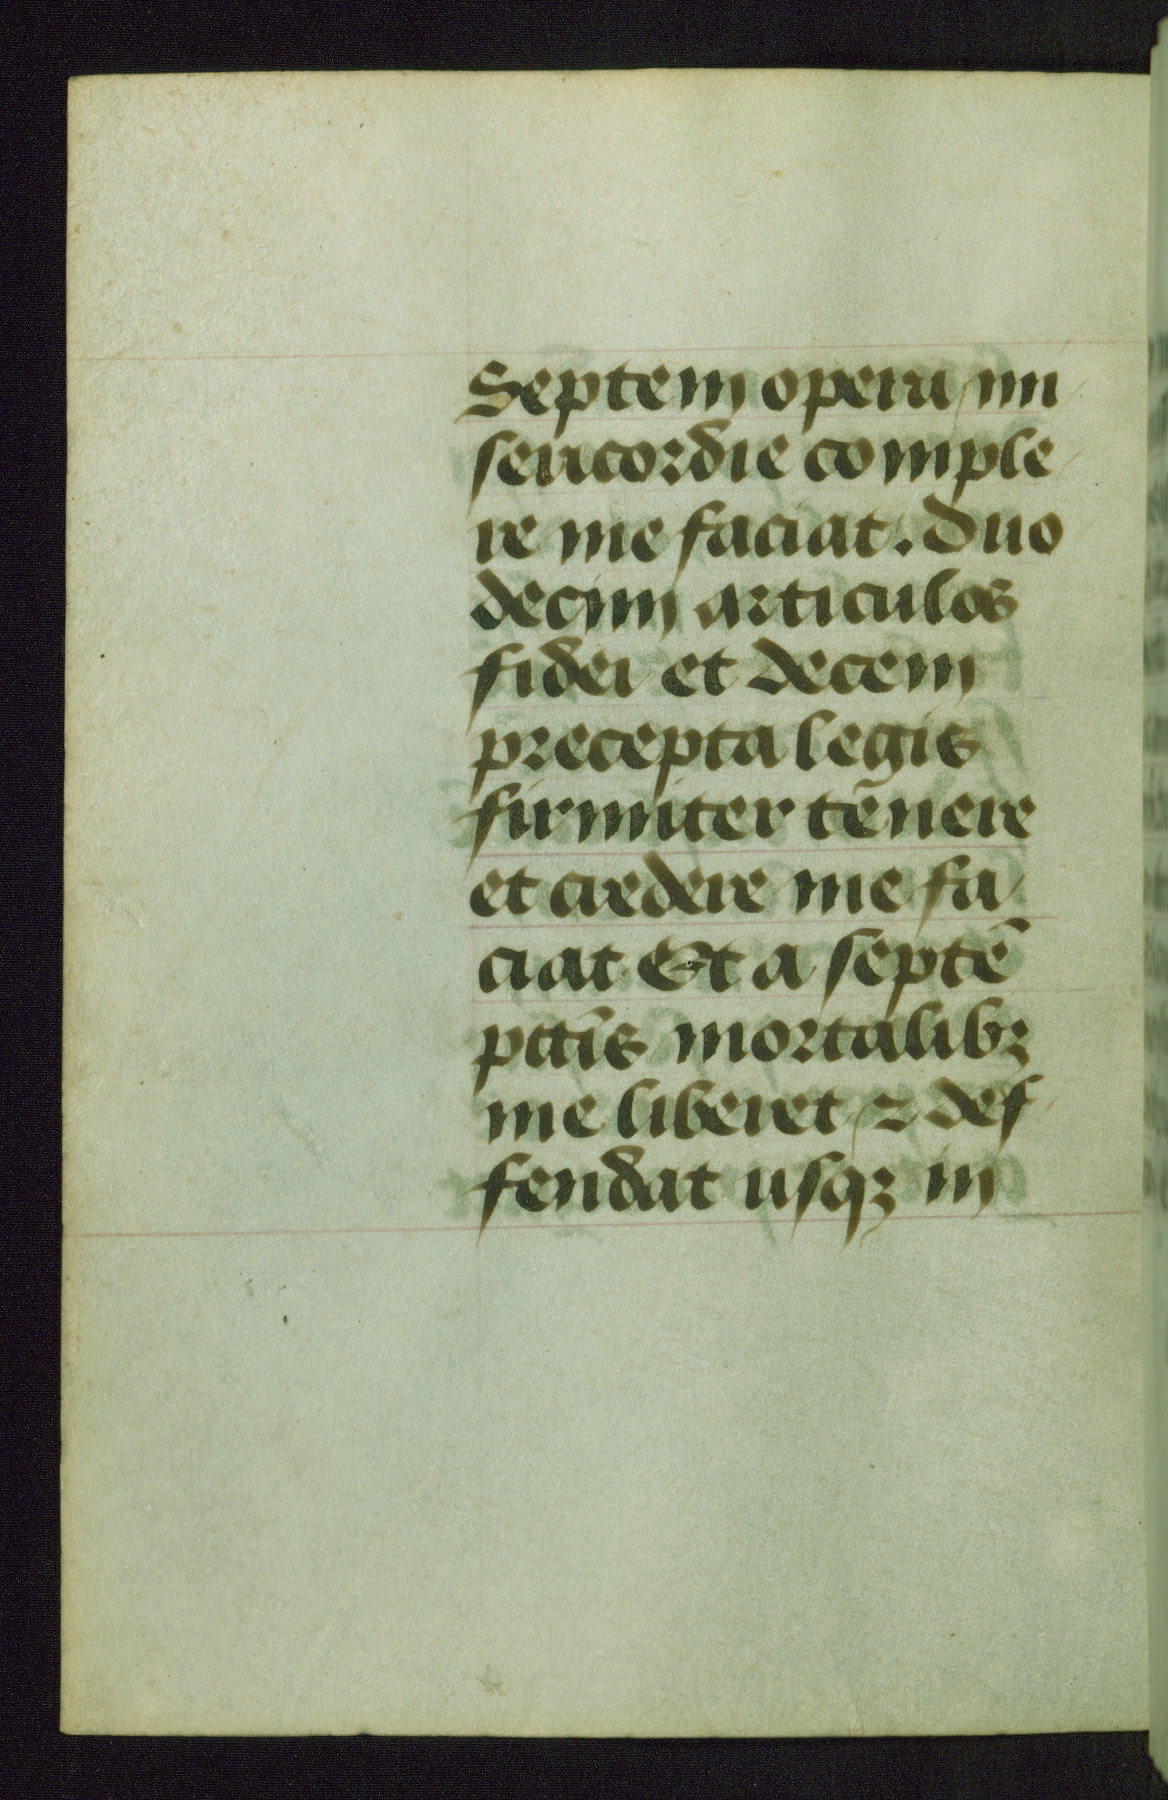 Septem opera mi
sericordie comple
re me faciat. Duo
decim articulos
fidei et decem
precepta legis
firmiter tēnere
et credere me fa
ciat Et a septē
pctīs mortalibꝫ
me liberet ⁊ def
fendat usqꝫ in